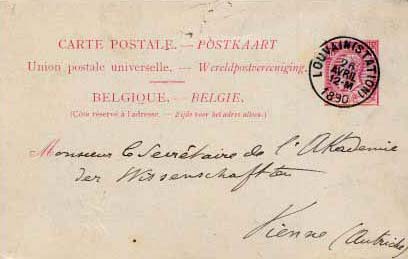 CARTE POSTALE. — POSTKAART
Union postale universelle. — Wereldpostvereeniging.
BELGIQUE. — BELGIE.
(Côté réservé à l'adresse. — Zijde voor het adres alleen.)
LOUVAIN (STATION)
26
AVRIL
12-M
1890
Monsieur le Secrétaire de l'Akademie
der Wissenschaften
Vienne (Autriche)